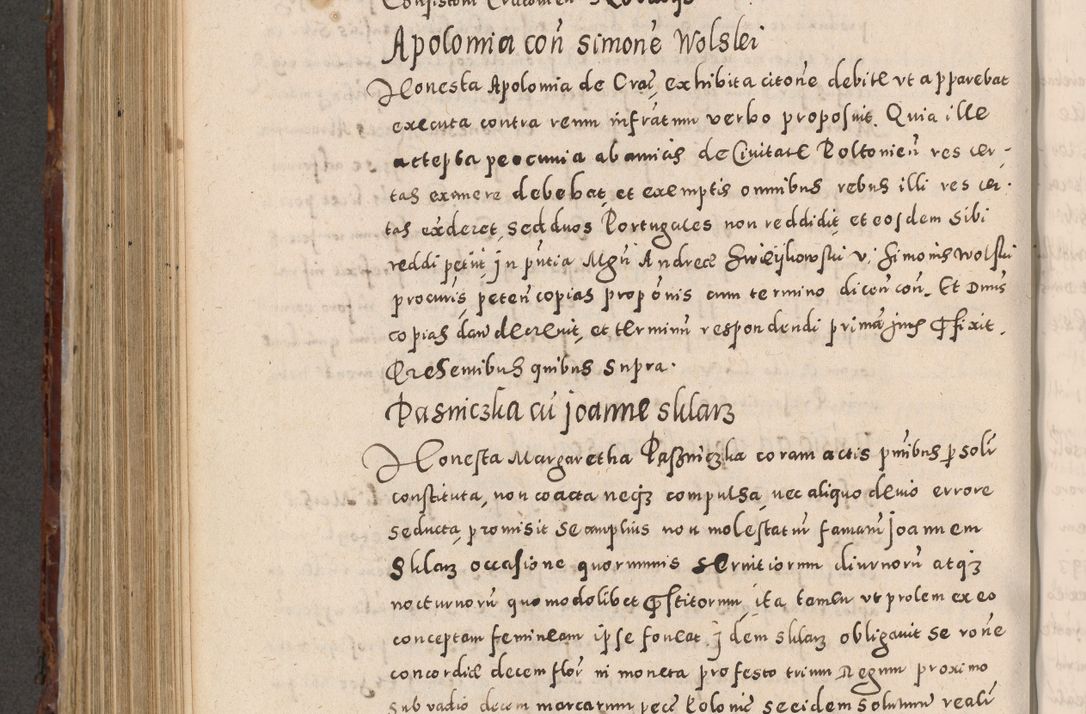 Apolomia con̄ Simone Wolslei
Honesta Apolomia de Crac̄, exhibita citone debite vt apparebat
executa contra reum infratum verbo proposuit. Quia ille
accepta peccunia ab amicis de Civitate Poltonien̄ res cer-
tas eximere debebat, et exemptis omnibus rebus illi res cer-
tas exderet, sed duos Portugales non reddidit, et eosdem sibi
reddi petiit, in pn̄tia Mgri Andreæ v. Simonis Wolski
procuris, peten̄ copias propōnis cum termino dicen̄ con̄. Et Dn̄us
copias dan̄ decrevit, et terminū respondendi primā juris pfixit.
Presentibus quibus supra.
Pasniczka cū Joanne Sklarz
Honesta Margaretha Paszniczka coram actis pn̄tibus psolr̄
constituta, non coacta neqz compulsa, nec aliquo devio errore
seducta, promisit se amplius non molestaturū famatū Joannem
Sklarz occasione quorumvis servitiorum diurnorū atqz
nocturnorū quomodolibet pstitorum, ita tamen vt prolem ex eo
conceptam femineam ipse foveat. Idem Sklarz obligavit se rōne
concordiæ decem flor̄ in moneta pro festo trium Regum proximo
sub vadio decem marcarum pecc̄ Polonic̄ se eidem soluturū realr̄